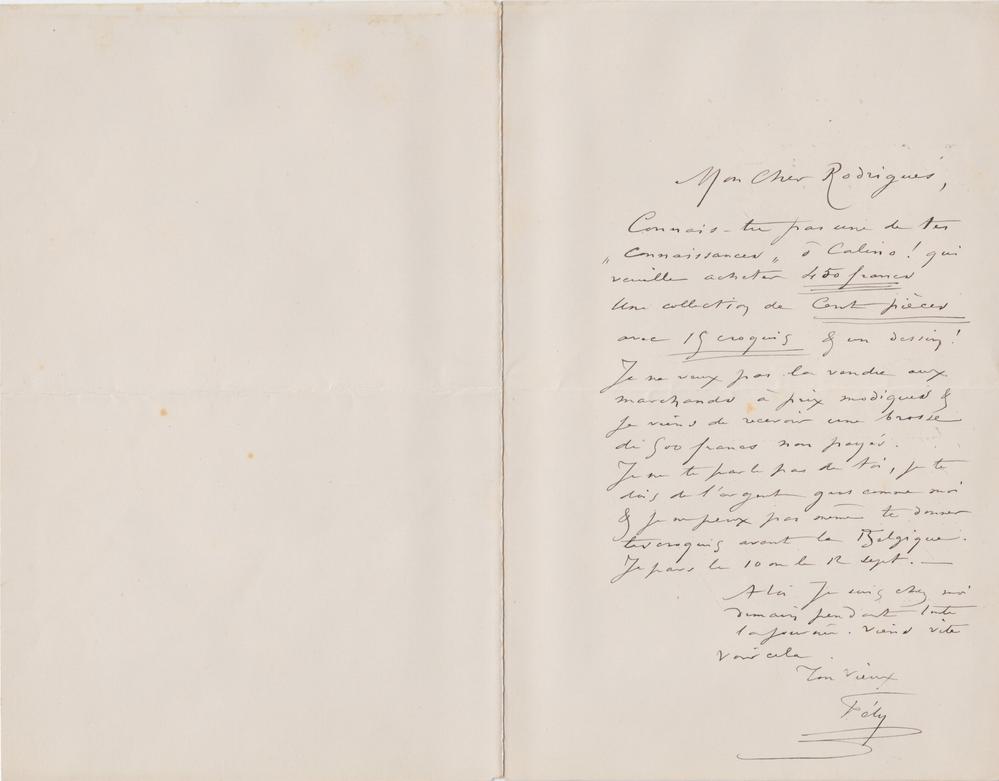 Mon Cher Rodrigues,
Connais-tu pas une de tes
„ connaissances „ ô Calino ! qui
veuille acheter 450 francs
Une collection de Cent pièces
avec 15 croquis & un dessin !
Je ne veux pas la vendre aux
marchands à prix modiques &
je viens de recevoir une brosse
de 500 francs non payés.
Je ne te parle pas de toi, je te
dois de l'argent gros comme moi
& je ne peux pas même te donner
tes croquis avant la Belgique.
Je pars le 10 ou le 12 sept. —
A toi Je suis chez moi
demain pendant toute
la journée. Viens vite
voir cela.
Ton vieux
Fély